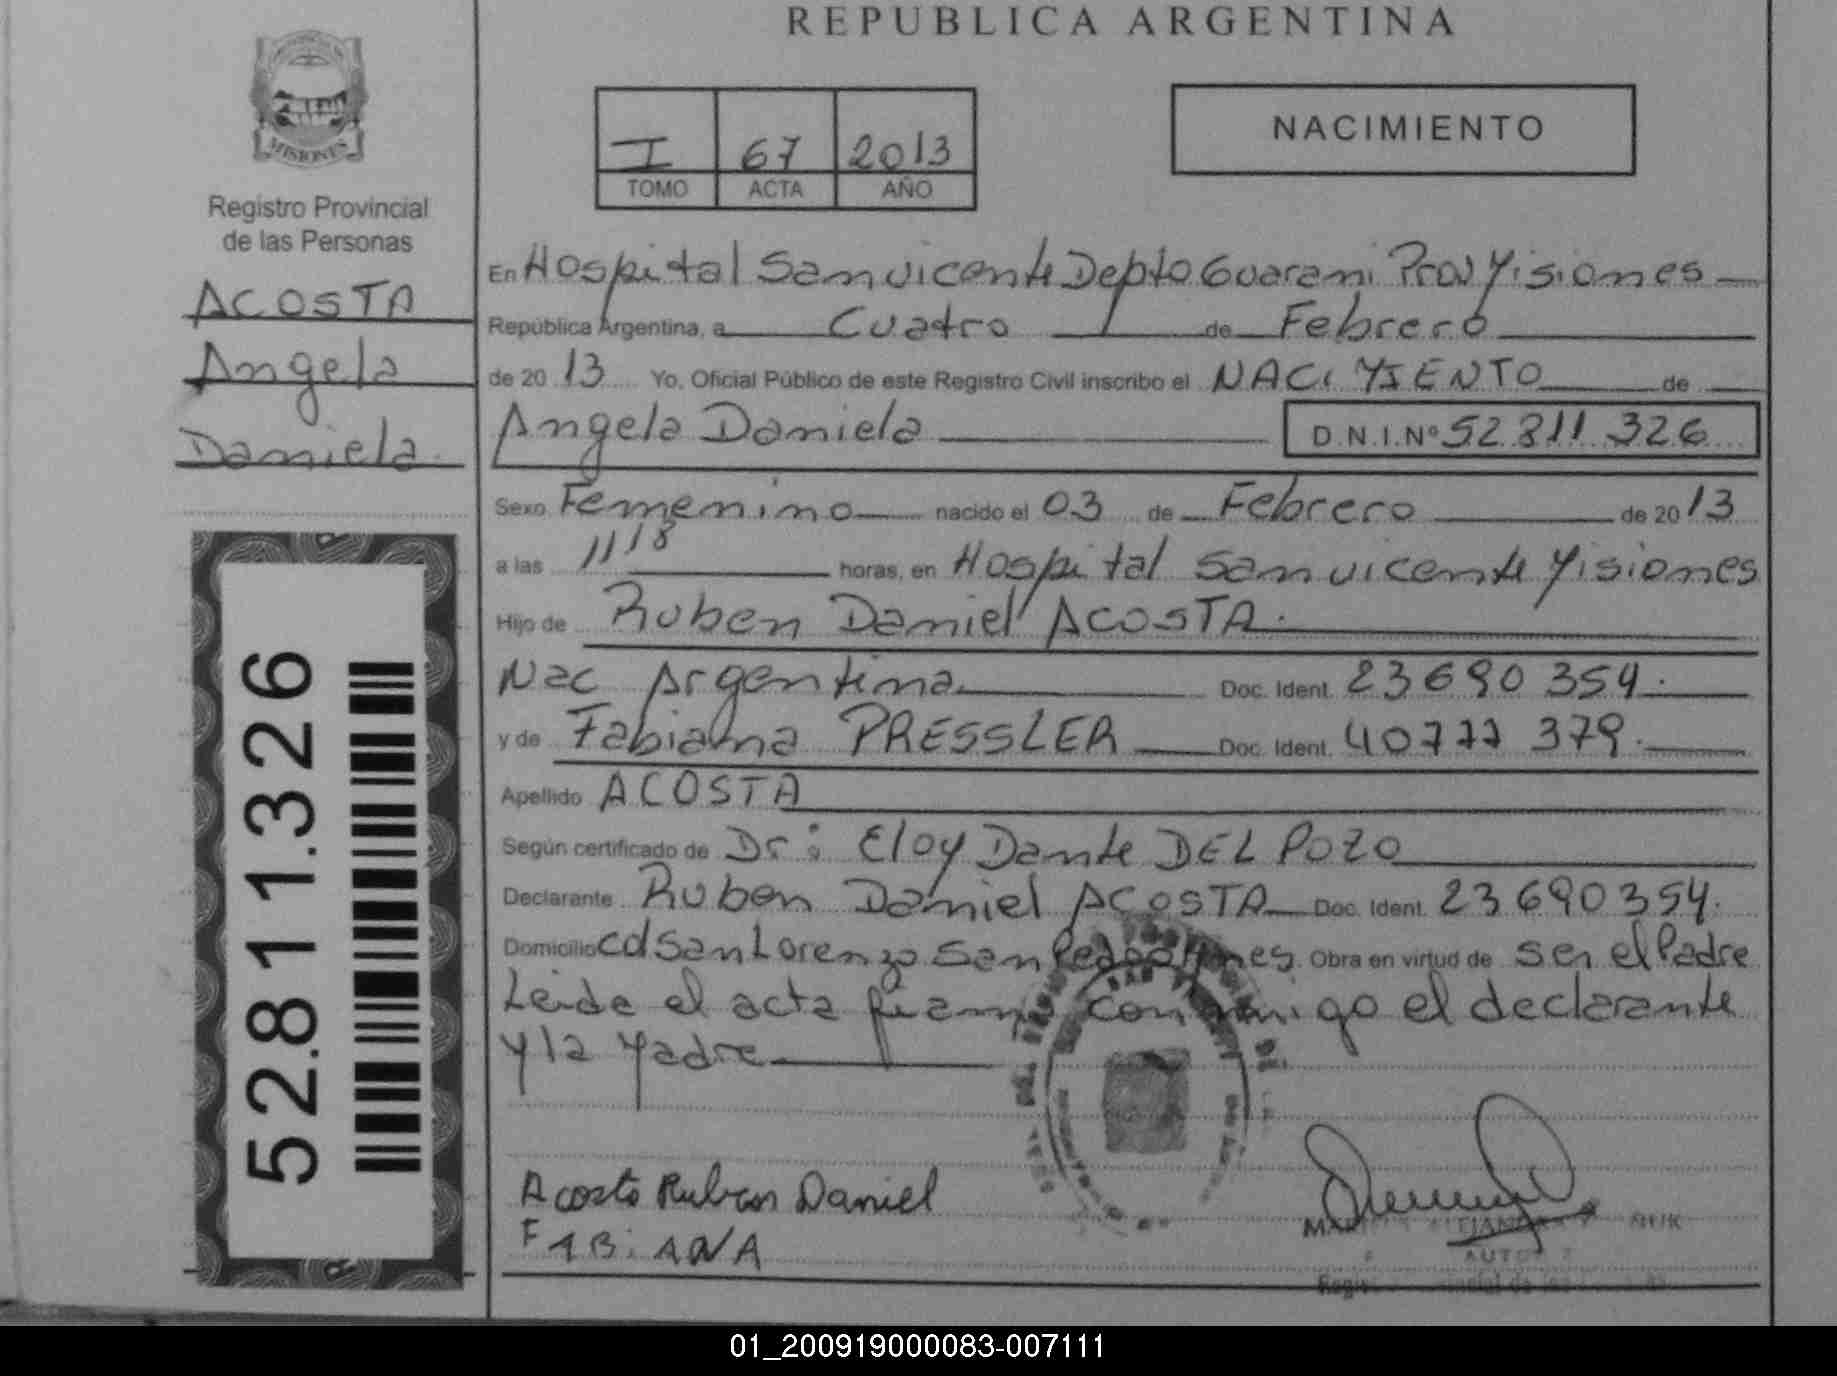 REPUBLICA ARGENTINA
MISIONES
Registro Provincial
de las Personas
ACOSTA
Angela
Daniela
52.811.326
I 67 2013
TOMO ACTA AÑO
NACIMIENTO
En Hospital San vicente Depto Guarani Prov Misiones
República Argentina, a Cuatro de Febrero
de 20 13 Yo, Oficial Público de este Registro Civil inscribo el NACIMIENTO de
Angela Daniela D.N.I.Nº 52 811 326
Sexo Femenino nacido el 03 de Febrero de 20 13
a las 11 18 horas, en Hospital San vicente Misiones
Hijo de Ruben Daniel ACOSTA.
Nac Argentina Doc. Ident. 23 690 354.
y de Fabiana PRESSLER Doc. Ident. 40777 379.
Apellido ACOSTA
Según certificado de Dr: Eloy Dante DEL POZO
Declarante Ruben Daniel ACOSTA Doc. Ident. 23 690 354.
Domicilio cd San Lorenzo San Pedro Mnes. Obra en virtud de ser el Padre
Leida el acta firman conmigo el declarante
y la Madre
Acosta Ruben Daniel
FABiANA
01_200919000083-007111